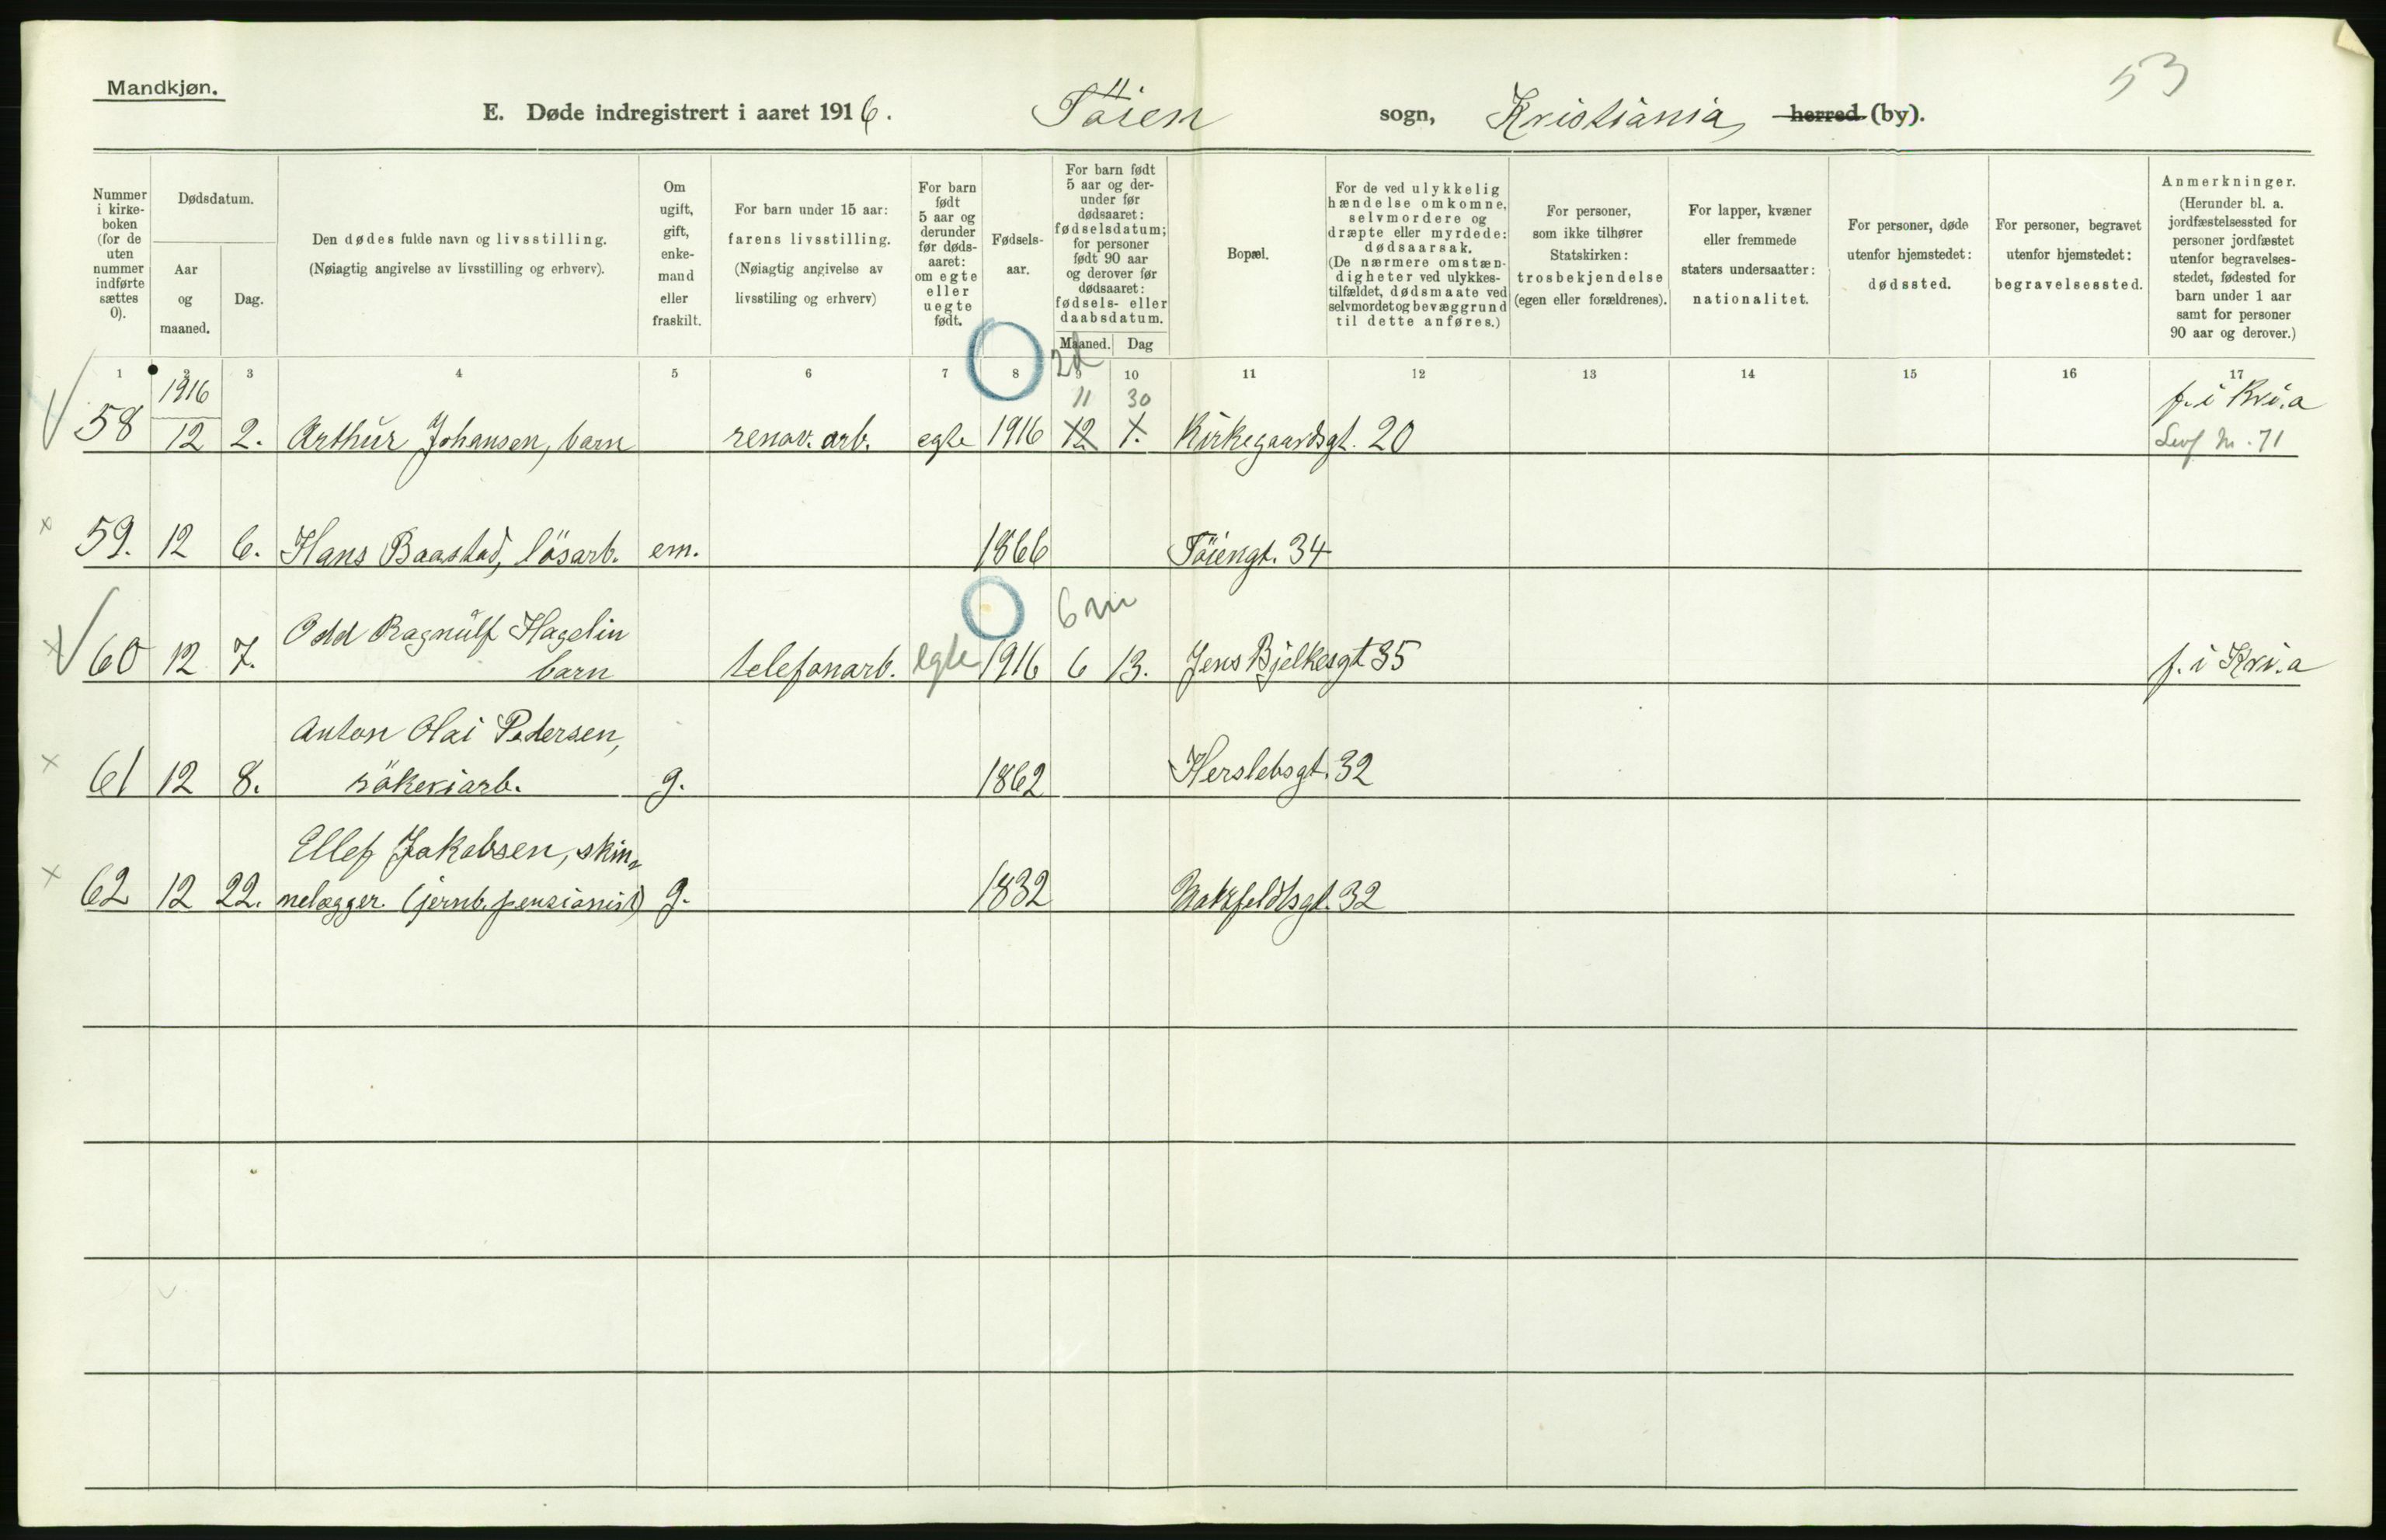 53
Mandkjøn.
E. Døde indregistrert i aaret 1916. Töien sogn, Kristiania herred (by).
Nummer i kirke-boken (for de uten nummer indførte sættes 0).
Dødsdatum.
Aar og maaned.
Dag.
Den dødes fulde navn og livsstilling.
(Nøiagtig angivelse av livsstilling og erhverv).
Om ugift, gift, enke-mand eller fraskilt.
For barn under 15 aar: farens livsstilling. (Nøiagtig angivelse av livsstiling og erhverv)
For barn født 5 aar og derunder før døds-aaret: om egte eller uegte født.
Fødsels-aar.
For barn født 5 aar og der-under før dødsaaret: fødselsdatum; for personer født 90 aar og derover før dødsaaret: fødsels- eller daabsdatum.
Maaned. Dag
Bopæl.
For de ved ulykkelig hændelse omkomne, selvmordere og dræpte eller myrdede: dødsaarsak. (De nærmere omstæn-digheter ved ulykkes-tilfældet, dødsmaate ved selvmordet og bevæggrund til dette anføres.)
For personer, som ikke tilhører Statskirken: trosbekjendelse (egen eller forældrenes).
For lapper, kvæner eller fremmede staters undersaatter: nationalitet.
For personer, døde utenfor hjemstedet: dødssted.
For personer, begravet utenfor hjemstedet: begravelsessted.
Anmerkninger. (Herunder bl. a. jordfæstelsessted for personer jordfæstet utenfor begravelses-stedet, fødested for barn under 1 aar samt for personer 90 aar og derover.)
1 2 3 4 5 6 7 8 9 10 11 12 13 14 15 16 17
1916 2d 11 30 f. i Kri.a
58 12 2. Arthur Johansen, barn renov. arb. egte 1916 12 1. Kirkegaardsgt. 20 Levf N. 71
59. 12 6. Hans Baastad, lösarb. em. 1866 Töiengt. 34
Odd Ragnulf Hagelin 6 m
60 12 7. barn telefonarb. egte 1916 6 13. Jens Bjelkesgt 35 f. i Kri.a
Anton Olai Pedersen,
61 12 8. rökeriarb. g. 1862 Herslebsgt. 32
Ellef Jakobsen, skin-
62 12 22. nelægger. (jernb. pensionist) g. 1832 32